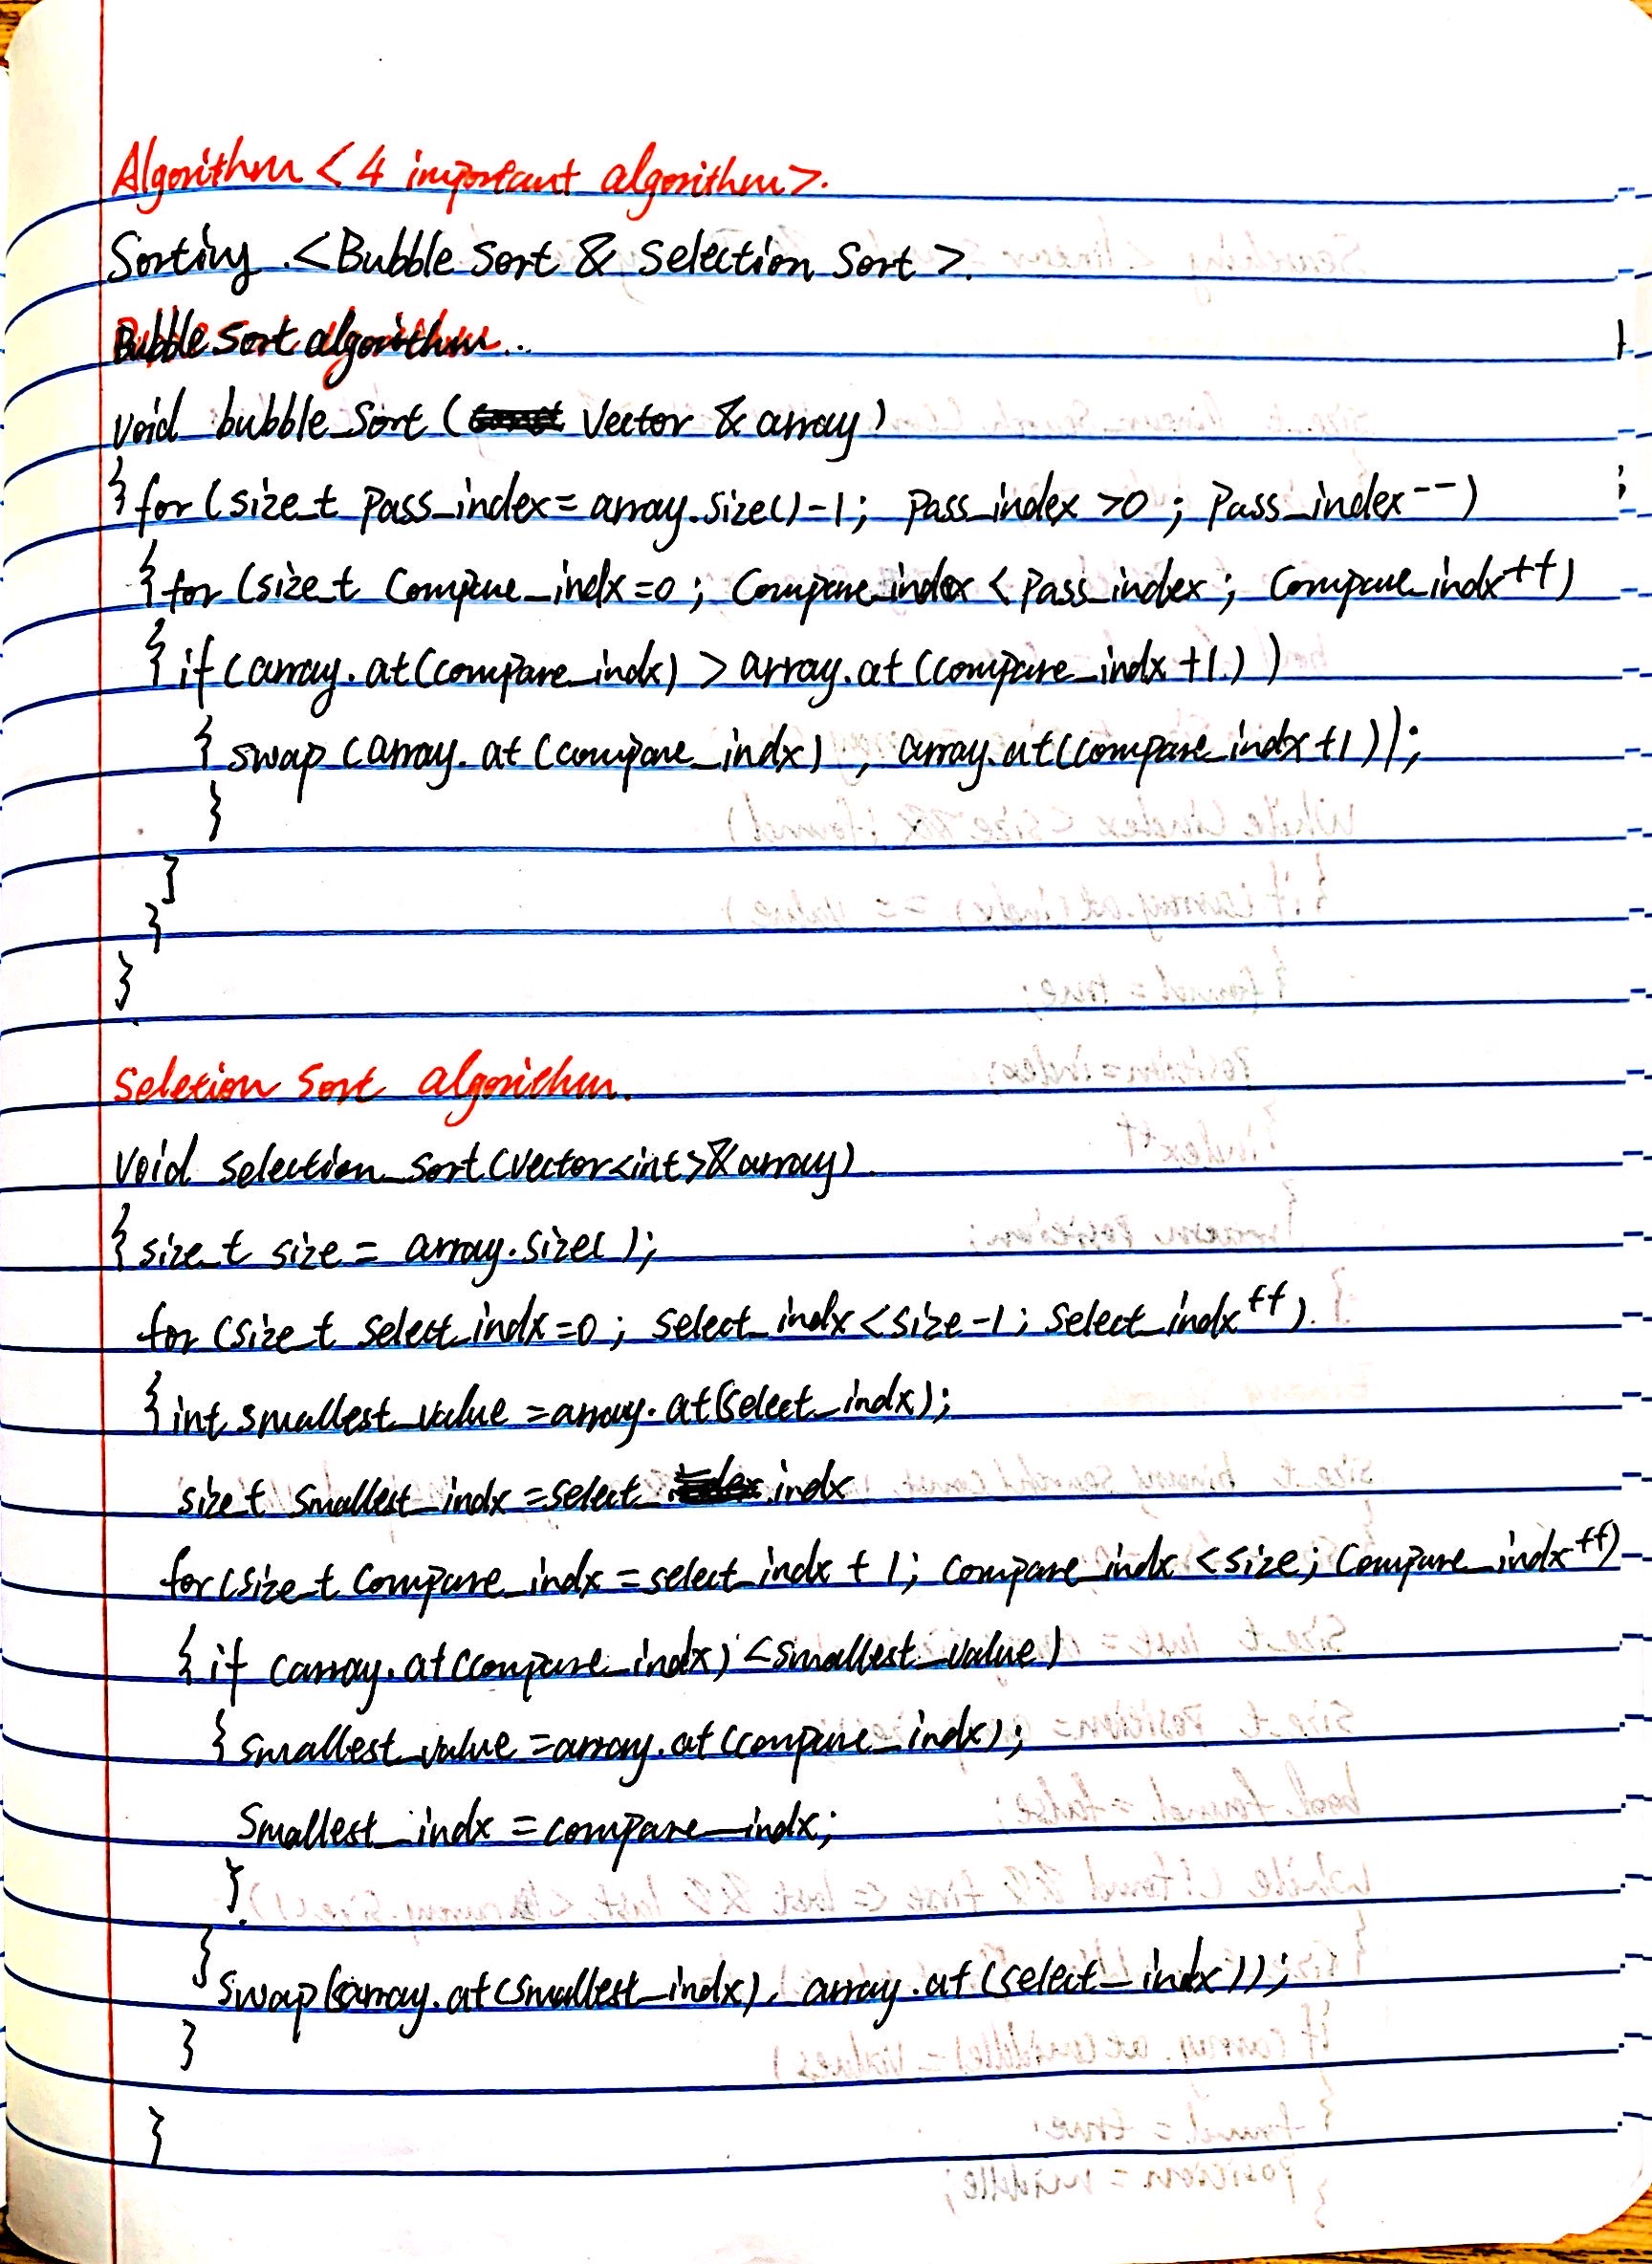 Algorithm < 4 important algorithm>.
Sorting .<Bubble Sort & Selection Sort >.
Bubble Sort algorithm..
void bubble_Sort ( Vector & array)
{ for (size_t Pass_index= array.size()-1; Pass_index >0 ; Pass_index--)
{ for (size_t Compare_indx=0 ; Compare_index < Pass_index ; Compare_indx++)
{ if (array.at(compare_indx) > array.at (compare_indx +1.) )
{ swap (array.at (compare_indx) , array.at(compare_indx+1));
}
}
}
}
Seletion Sort algorithm.
Void Selection_Sort(vector<int>&array).
{ size_t size = array.size( );
for (size_t select_indx=0 ; select_indx <size-1 ; select_indx++).
{ int smallest_value =array.at(select_indx);
size_t smallest_indx =select_ indx
for (size_t Compare_indx =select_indx + 1; Compare_indx <size; Compare_indx++)
{ if (array.at(compare_indx) <smallest_value)
{ smallest_value =array.at (compare_indx);
Smallest_indx =compare_indx;
}
}
swap(array.at(smallest_indx), array.at (select_indx));
}
}